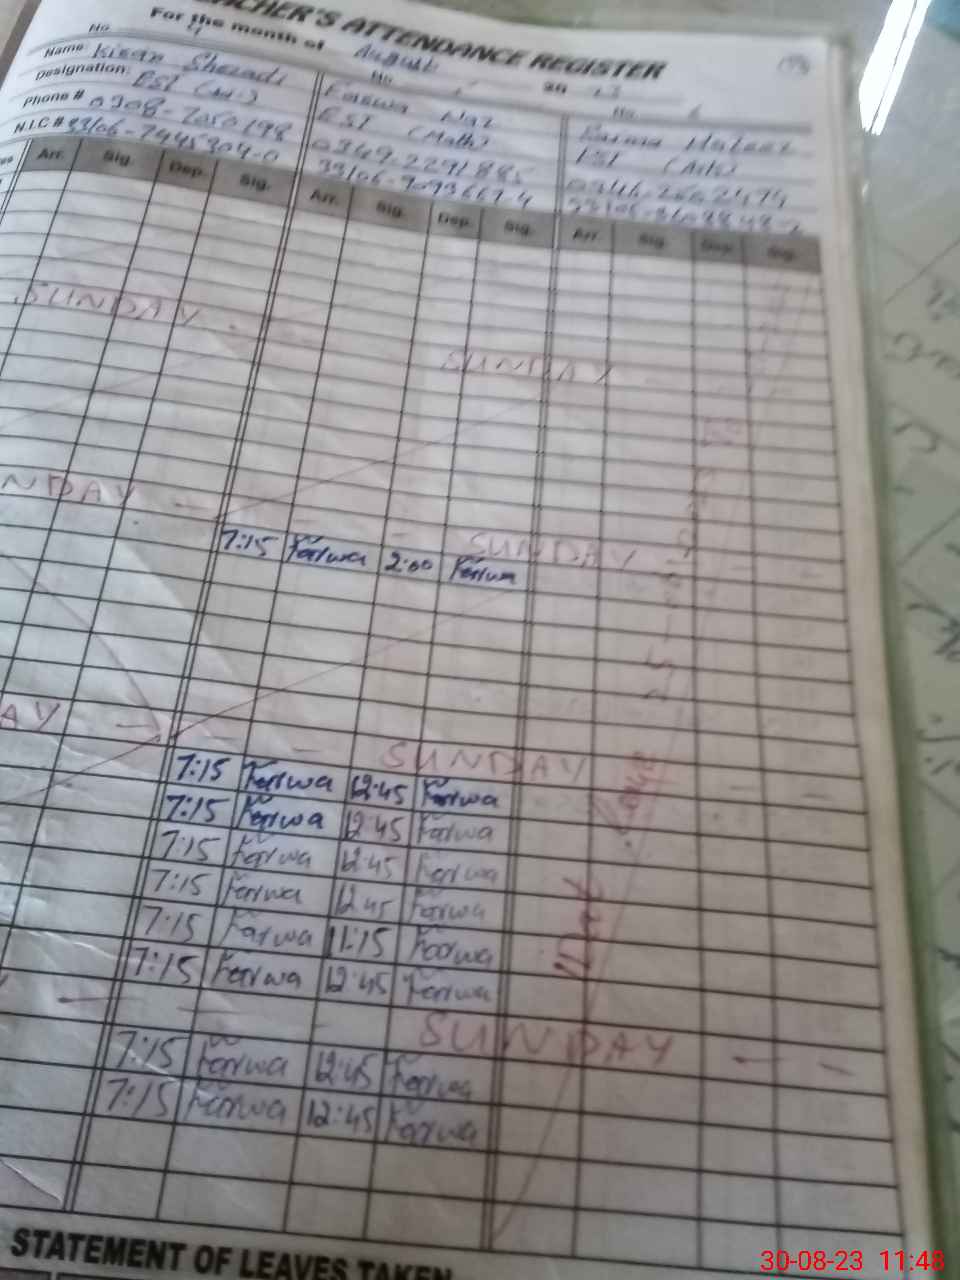 TEACHER'S ATTENDANCE REGISTER
For the month of August 20 23
No. 4 No. 5 No. 6
Name: Kiran Shezadi Farwa Naz
Designation: EST EST (Math) EST (Arts)
Phone # 0308- 0349-2291885
N.I.C # 33106-7445304-0 33106-7093667-4
Arr. Sig. Dep. Sig. Arr. Sig. Dep. Sig. Arr. Sig. Dep. Sig.
SUNDAY
SUNDAY
NDAY
SUNDAY
7:15 Farwa 2:00 Farwa
AY
SUNDAY
7:15 Farwa 12:45 Farwa
7:15 Farwa 12:45 Farwa
7:15 Farwa 12:45 Farwa
7:15 Farwa 12:45 Farwa
7:15 Farwa 11:15 Farwa
7:15 Farwa 12:45 Farwa
SUNDAY
7:15 Farwa 12:45 Farwa
7:15 Farwa 12:45 Farwa
STATEMENT OF LEAVES TAKEN
30-08-23 11:48